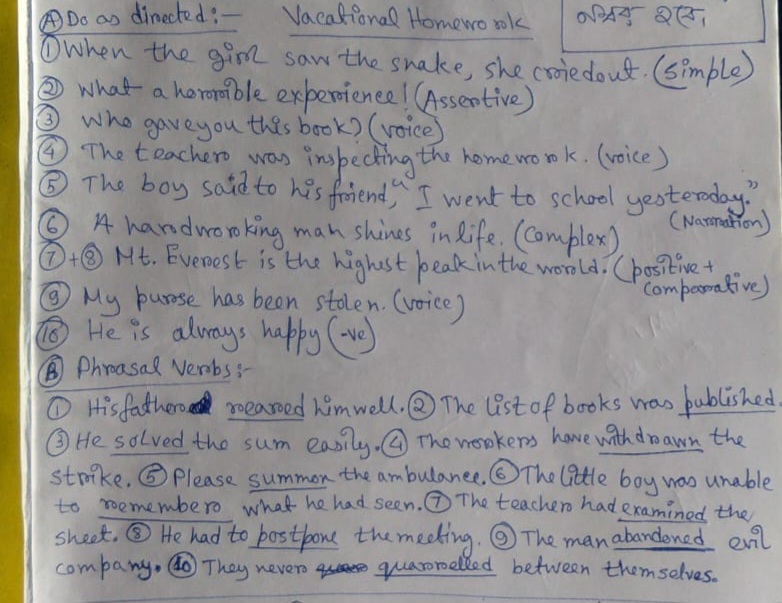 Ⓐ Do as directed:- Vacational Homework
① When the girl saw the snake, she cried out. (Simple)
② What a horrible experience! (Assertive)
③ Who gave you this book? (voice)
④ The teacher was inspecting the homework. (voice)
⑤ The boy said to his friend, "I went to school yesterday."
(Narration)
⑥ A hardworking man shines in life. (Complex)
⑦+⑧ Mt. Everest is the highest peak in the world. (positive +
Comparative)
⑨ My purse has been stolen. (voice)
⑩ He is always happy (-ve)
Ⓑ Phrasal Verbs:-
① His father reared him well. ② The list of books was published.
③ He solved the sum easily. ④ The workers have withdrawn the
strike. ⑤ Please summon the ambulance. ⑥ The little boy was unable
to remember what he had seen. ⑦ The teacher had examined the
sheet. ⑧ He had to postpone the meeting. ⑨ The man abandoned evil
company. ⑩ They never quarrelled between themselves.